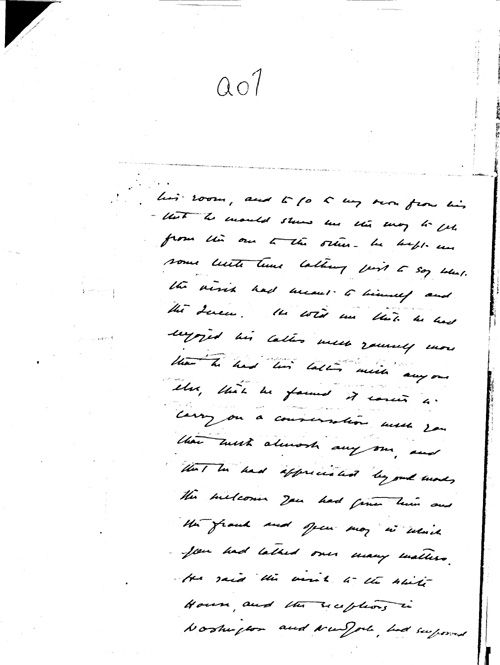 a07
his room, and to go to my own from his
that he would show me the way to get
from the one to the other - he kept me
some little time talking just to say what
the visit had meant to himself and
the Queen. He told me that he had
enjoyed his talks with yourself more
than he had his talks with anyone
else, that he found it easier to
carry on a conversation with you
than with almost anyone, and
that he had appreciated beyond words
the welcome you had given him and
the frank and open way in which
you had talked over many matters.
He said the visit to the White
House, and the receptions in
Washington and New York, had surpassed